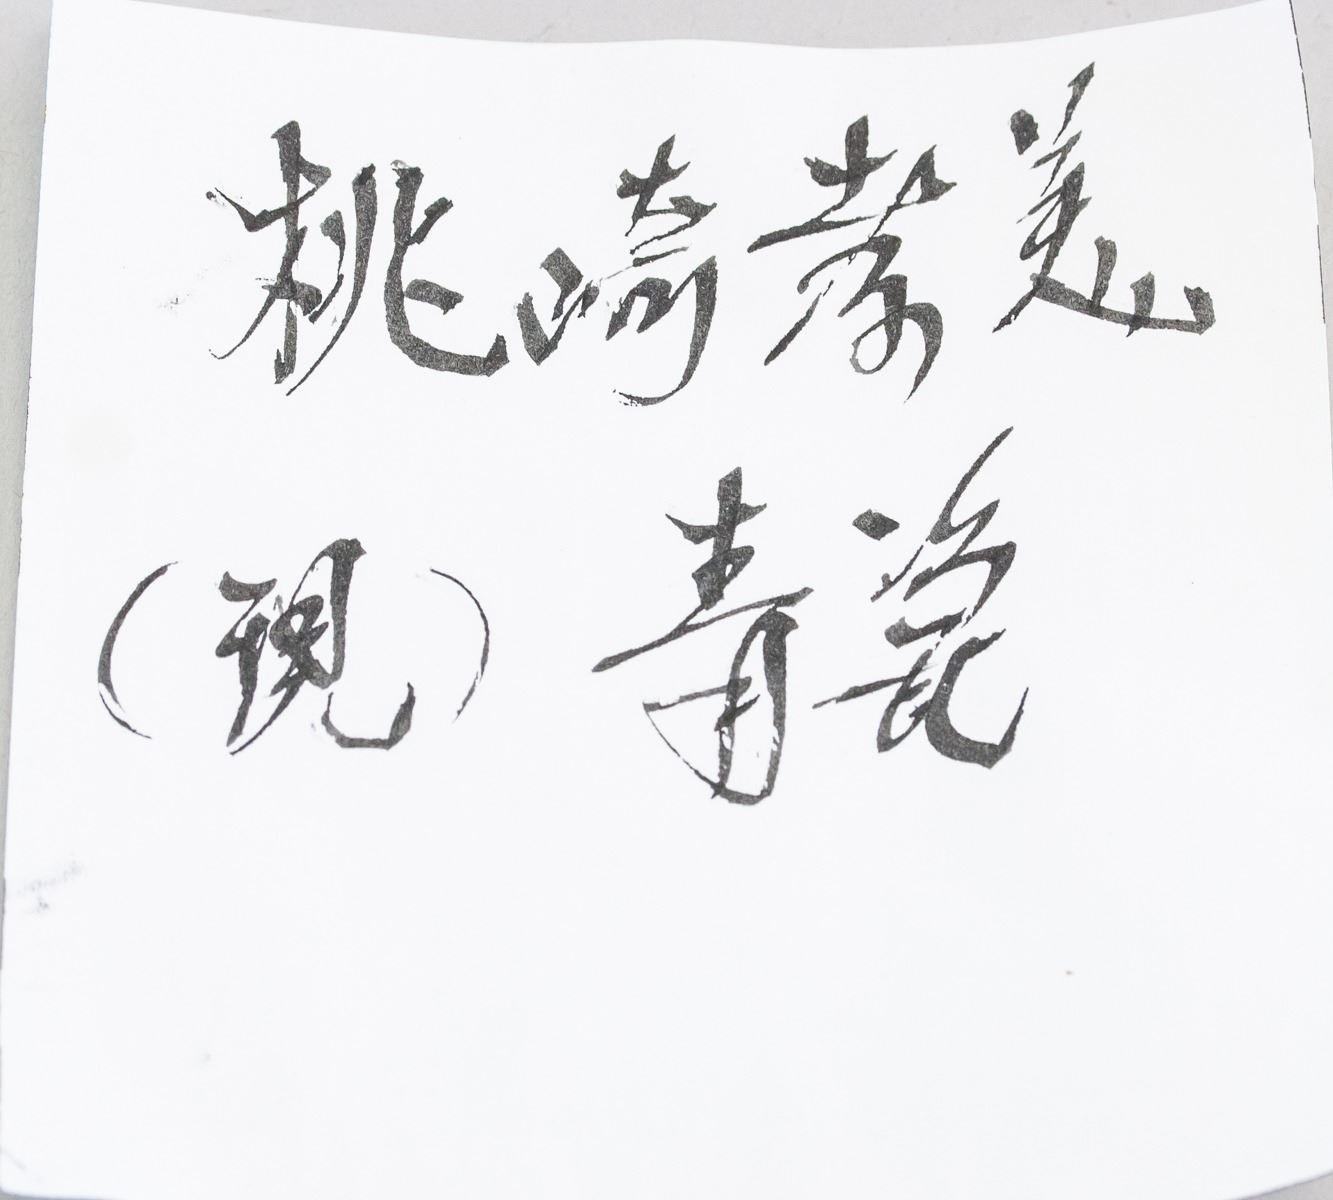 桃崎孝美
(現) 青瓷